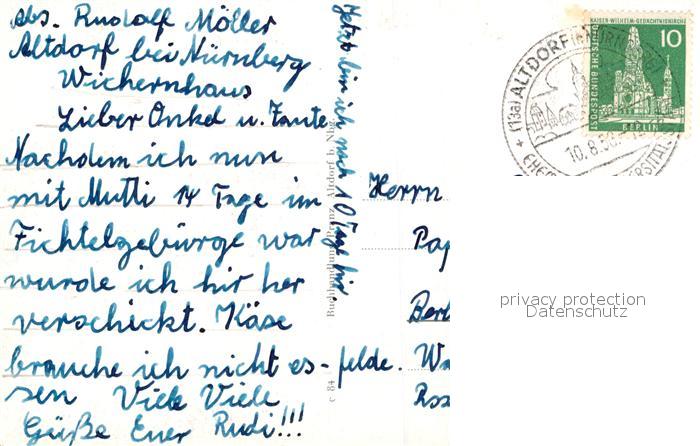 Abs. Rudolf Möller
Altdorf bei Nürnberg
Wichernhaus
Lieber Onkel u. Tante
Nachdem ich nun
mit Mutti 14 Tage im
Fichtelgebürge war
wurde ich hir her
verschickt. Käse
brauche ich nicht es-
sen Viele Viele
Grüße Euer Rudi!!!
Jetzt bin ich noch 10 Tage hir.
Buchhandlung Prinz, Altdorf b. Nbg.
c 84
Herrn
Pap
Berl
felde.
KAISER-WILHELM-GEDÄCHTNISKIRCHE
10
DEUTSCHE BUNDESPOST
BERLIN
(13a) ALTDORF
10.8.56
privacy protection
Datenschutz